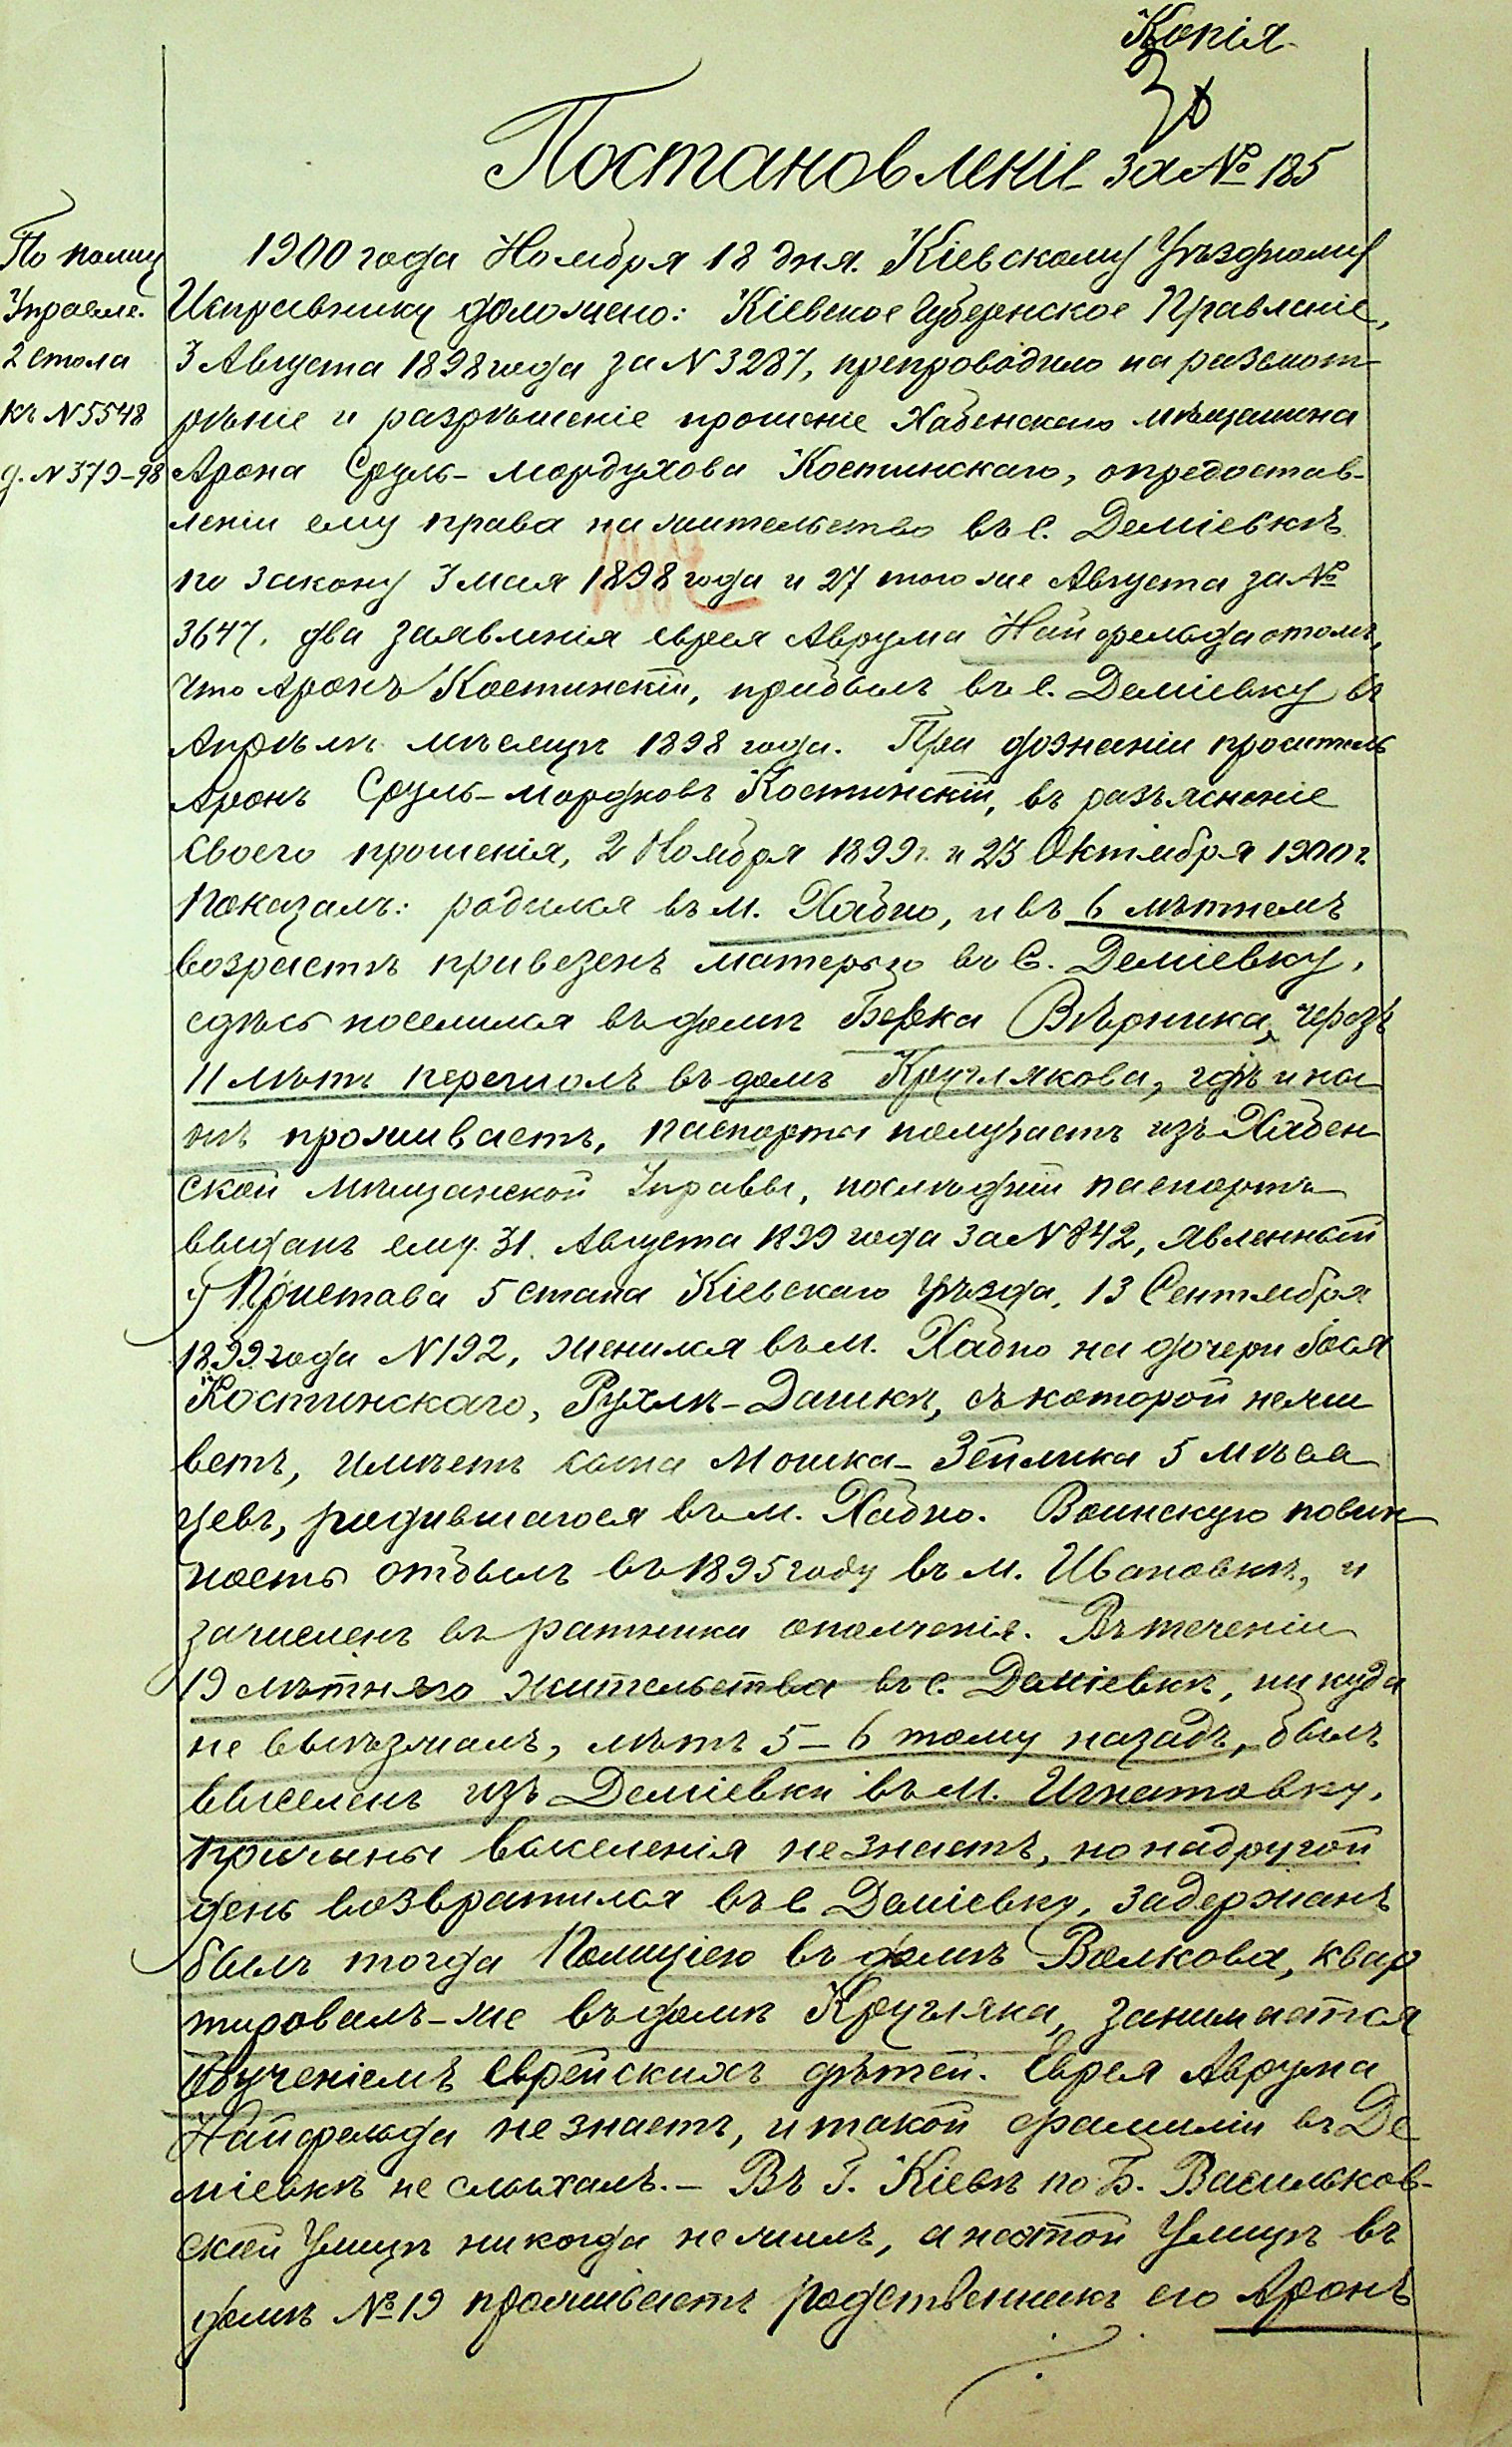 Копія
30
Постановленіе за № 185
По полиц
Управле.
2 стола
къ N 5548
д. N 379-98
1900 года Ноября 18 дня. Кіевскому Уѣздному
Исправнику доложено: Кіевское Губернское Правленіе,
3 Августа 1898 года за N 3287, препроводило на разсмот-
рѣніе и разрѣшеніе прошеніе Хабенскаго мѣщанина
Арона Сруль-Мордухова Костинскаго, о предостав-
леніи ему права на жительство въ с. Деміевкѣ
по закону 3 мая 1898 года и 27 того же Августа за №
3647. два заявленія еврея Аврума Найфельда о томъ,
что Аронъ Костинскій, прибылъ въ с. Деміевку въ
Апрѣлѣ мѣсяцѣ 1898 года. При дознаніи проситель
Аронъ Сруль-Мордковъ Костинскій, въ разъясненіе
своего прошенія, 2 Ноября 1899 г. и 23 Октября 1900 г.
показалъ: родился въ м. Хабно, и въ 6 лѣтнемъ
возрастѣ привезенъ матерью въ с. Деміевку,
сдѣсь поселился въ домѣ Берка Вѣрника, черезъ
11 лѣтъ перешолъ въ домъ Круглякова, гдѣ и по-
нъ проживаетъ, паспорты получаетъ изъ Хабен
ской Мѣщанской Управы, послѣдній паспортъ
выданъ ему 31. Августа 1899 года за N 842, явленный
у Пристава 5 стана Кіевскаго уѣзда, 13 Сентября
1899 года N 192, женился въ м. Хабно на дочери Іося
Костинскаго, Рухлѣ-Дашкѣ, съ которой не жи
ветъ, имѣетъ сына Мошка-Зейлика 5 мѣся
цевъ, родившагося въ м. Хабно. Воинскую повин
ность отбылъ въ 1895 году въ м. Ивановкѣ, и
зачисленъ въ ратники ополченія. Въ теченіи
19 лѣтняго жительства въ с. Деміевкѣ, никуда
не выѣзжалъ, лѣтъ 5-6 тому назадъ, былъ
выселенъ изъ Деміевки въ м. Игнатовку,
причины выселенія не знаетъ, но на другой
день возвратился въ с Деміевку, задержанъ
былъ тогда Полиціею въ домѣ Волкова, квар
тировалъ-же въ домѣ Кругляка, занимается
обученіемъ Еврейскихъ дѣтей. Еврея Аврума
Найфельда не знаетъ, и такой фамиліи въ Де
міевкѣ не слыхалъ.- Въ Г. Кіевѣ по Б. Васильков-
ской улицѣ никогда не жилъ, а по этой улицѣ въ
домѣ № 19 проживаетъ родственникъ его Аронъ